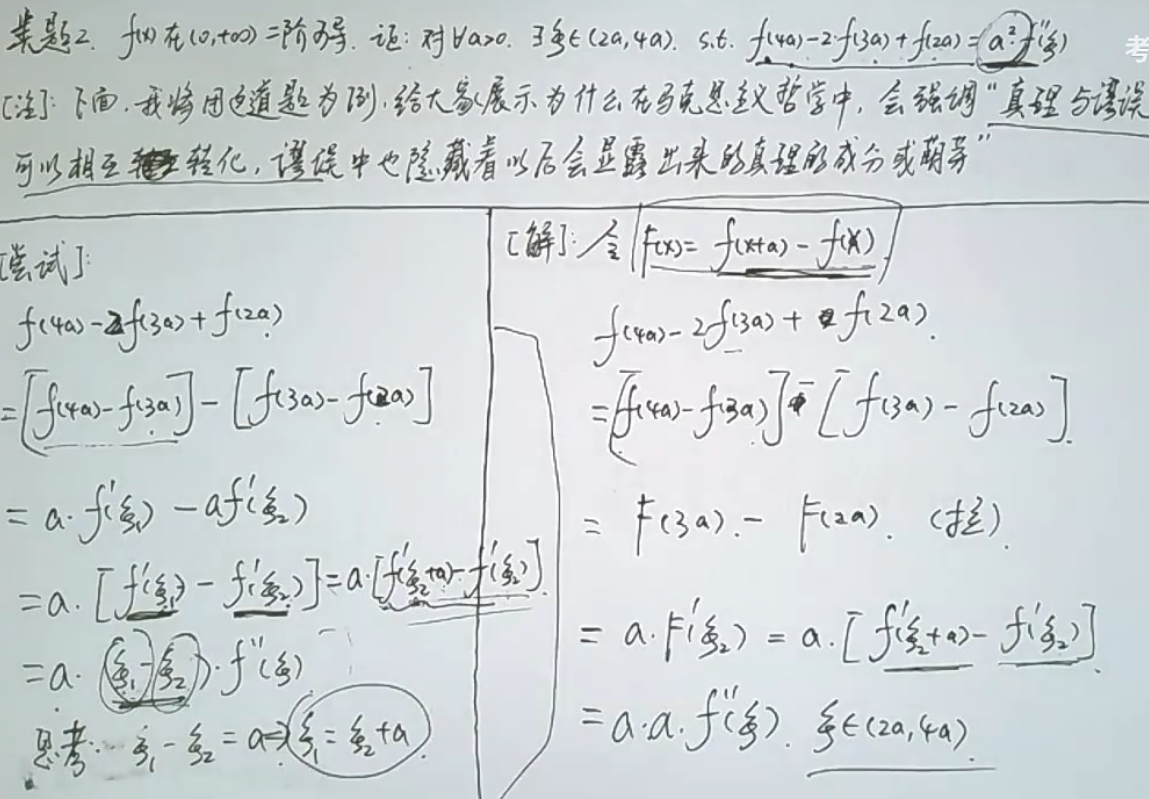 类题2. f(x)在(0,+∞)二阶可导. 证: 对∀a>0. ∃ξ∈(2a,4a). s.t. f(4a)-2·f(3a)+f(2a)=a²·f''(ξ)
考
[注]: 下面,我将用这道题为例,给大家展示为什么在马克思主义哲学中,会强调“真理与谬误
可以相互转化,谬误中也隐藏着以后会显露出来的真理的成分或萌芽”
[尝试]:
f(4a)-2f(3a)+f(2a)
=[f(4a)-f(3a)]-[f(3a)-f(2a)]
=a·f'(ξ₁)-af'(ξ₂)
=a·[f'(ξ₁)-f'(ξ₂)]=a·[f'(ξ₂+a)-f'(ξ₂)]
=a·(ξ₁-ξ₂)·f''(ξ)
思考: ξ₁-ξ₂=a⇒ξ₁=ξ₂+a
[解]: 令F(x)=f(x+a)-f(x)
f(4a)-2f(3a)+f(2a).
=[f(4a)-f(3a)]-[f(3a)-f(2a)].
=F(3a)-F(2a). (拉).
=a·F'(ξ₂)=a·[f'(ξ₂+a)-f'(ξ₂)]
=a·a·f''(ξ). ξ∈(2a,4a).